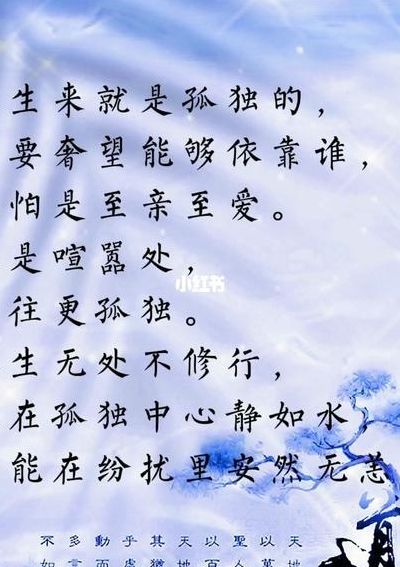 生来就是孤独的，
要奢望能够依靠谁，
怕是至亲至爱。
是喧嚣处，
往更孤独。
生无处不修行，
在孤独中心静如水，
能在纷扰里安然无恙
小红书
不多動乎其天以聖以天
如言而虚猶地百人萬地